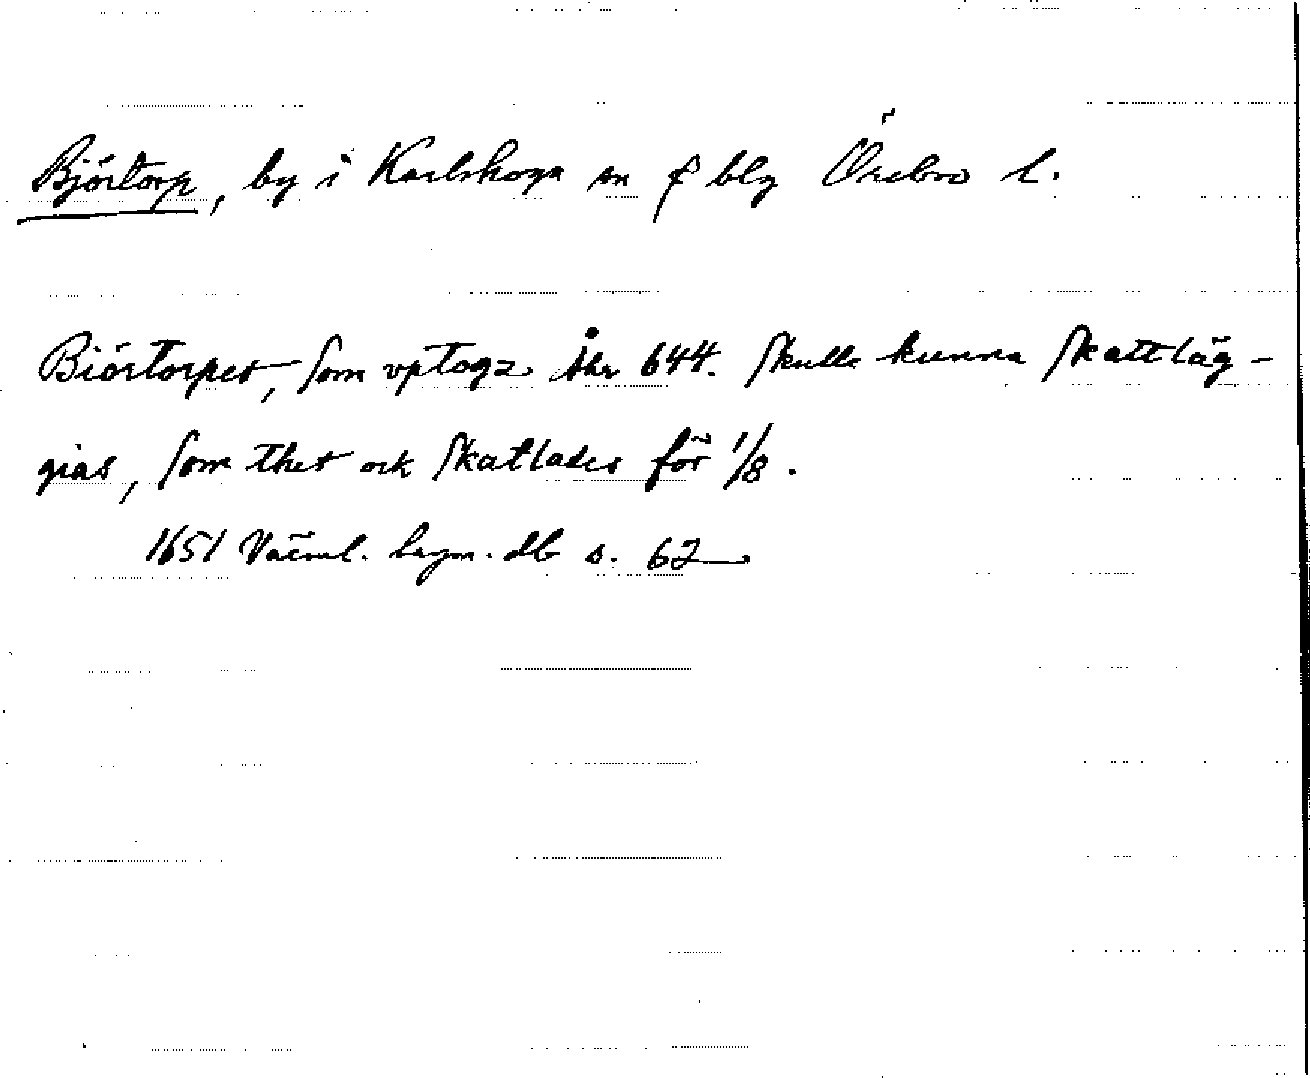 Björtorp, by i Karlskoga sn o blg Örebro l.
Biörtorpet, som vptogz åhr 644. skulle kunna skattläg-
gias, som thet ock skatlades för 1/8.
1651 Värml. lagm. db s. 62